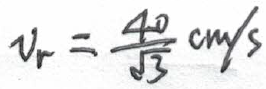 v_r = \frac{40}{\sqrt{3}} cm/s